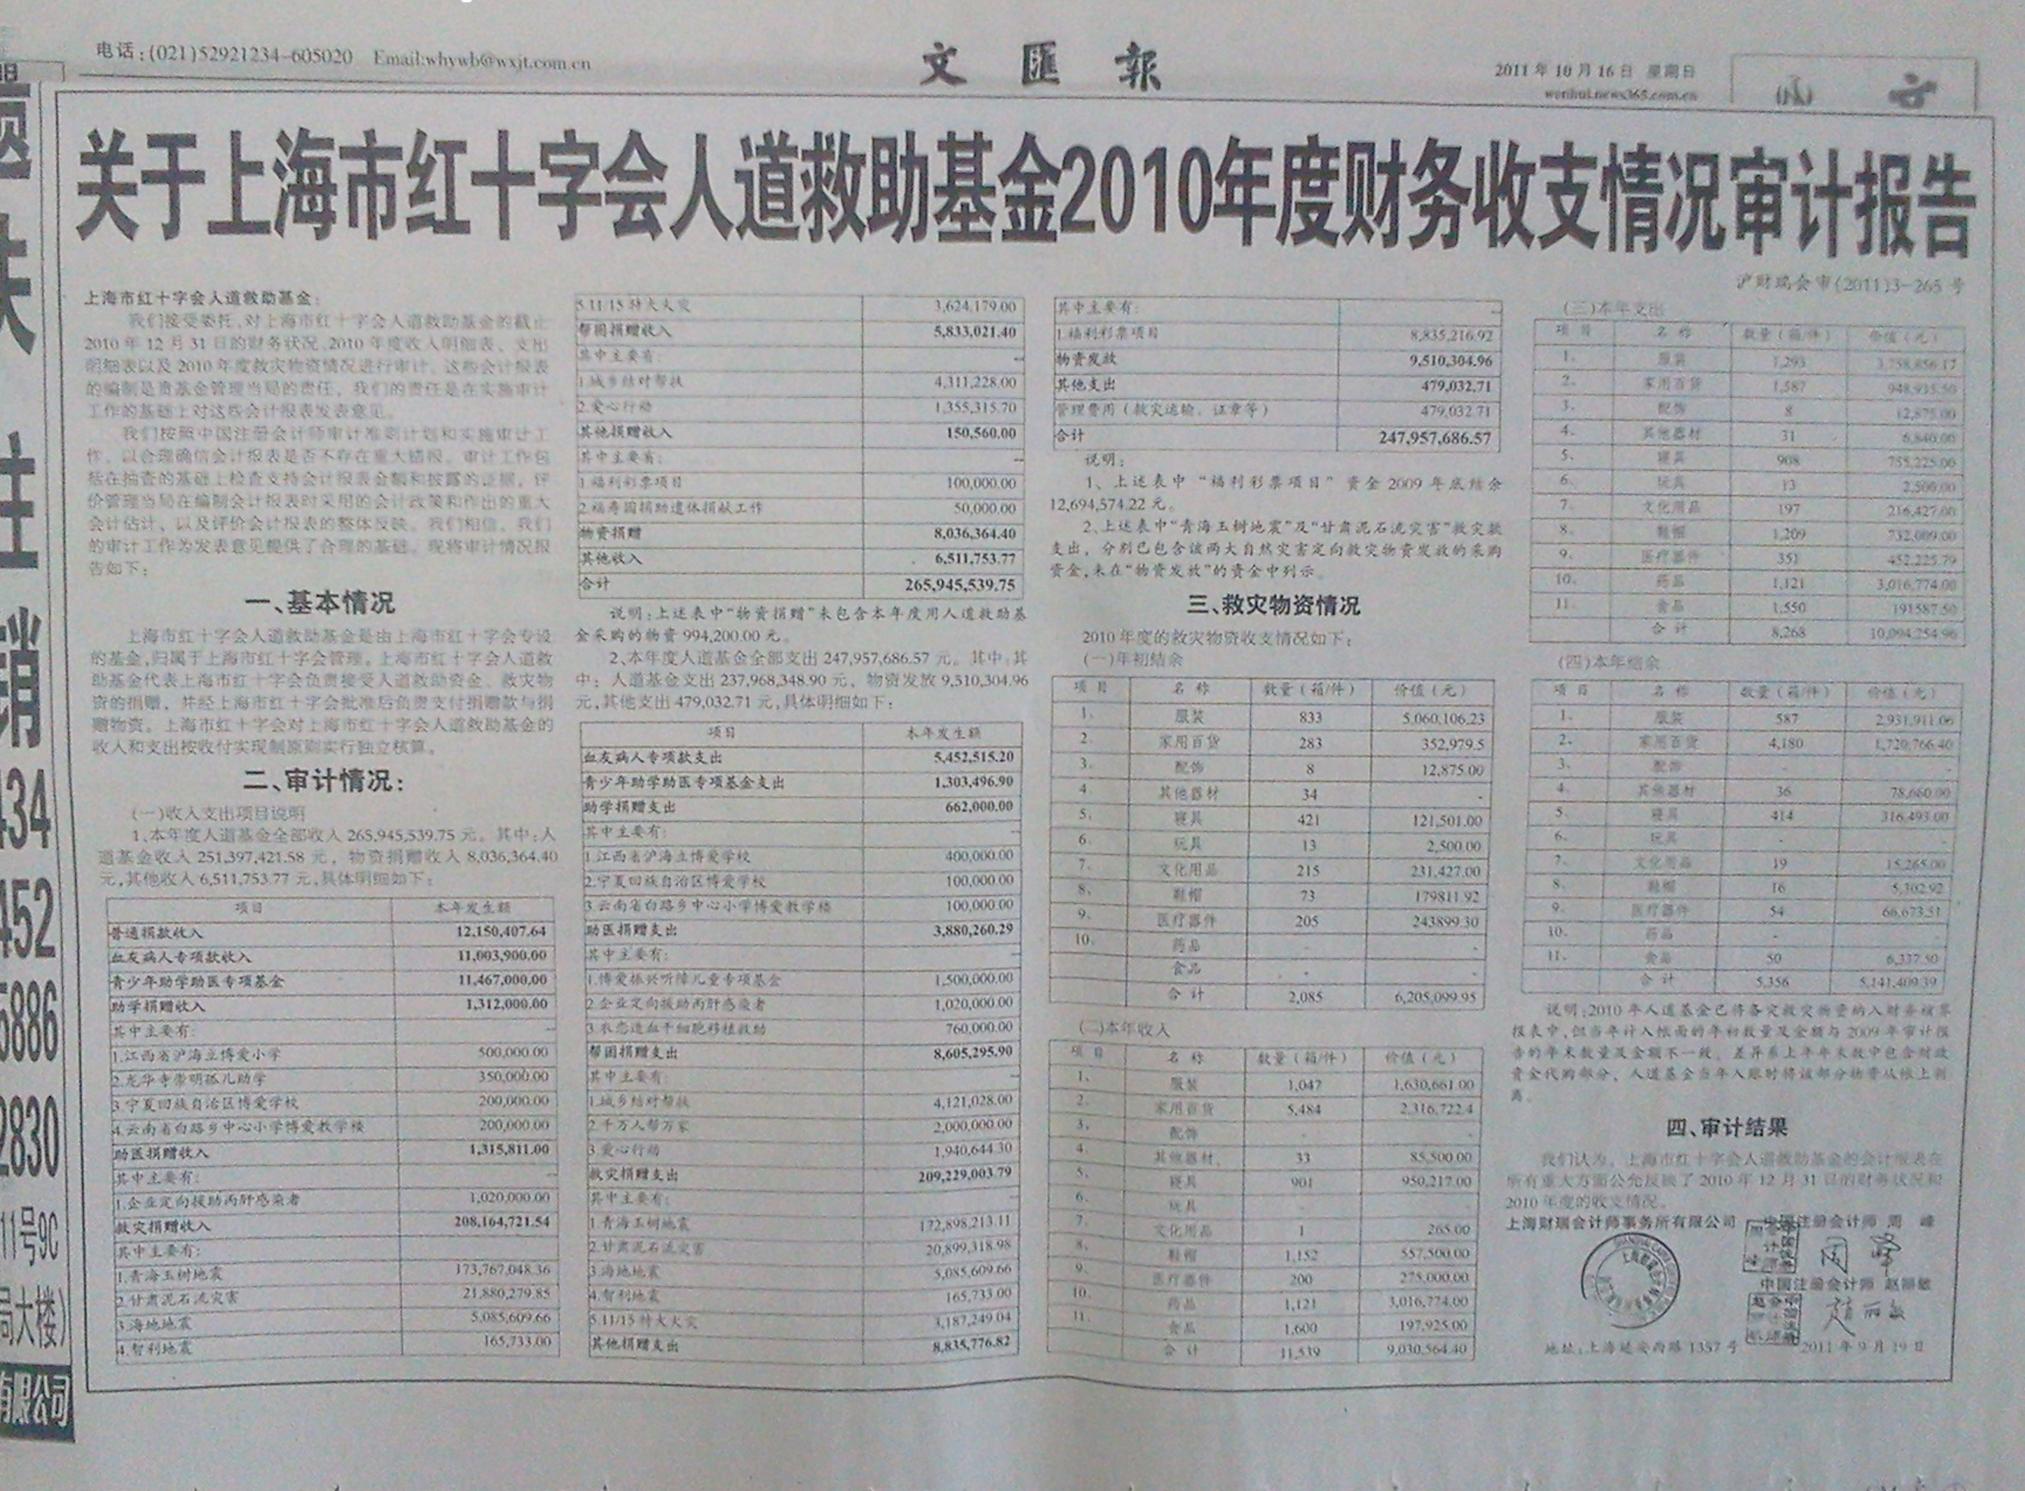 电话:(021)52921234-605020 Email:whywb@wxjt.com.cn
文匯報
2011年10月16日 星期日
wenhui.news365.com.cn
关于上海市红十字会人道救助基金2010年度财务收支情况审计报告
沪财瑞会审(2011)3-265号
上海市红十字会人道救助基金:
我们接受委托,对上海市红十字会人道救助基金的截止
2010年12月31日的财务状况、2010年度收入明细表、支出
明细表以及2010年度救灾物资情况进行审计。这些会计报表
的编制是贵基金管理当局的责任,我们的责任是在实施审计
工作的基础上对这些会计报表发表意见。
我们按照中国注册会计师审计准则计划和实施审计工
作,以合理确信会计报表是否不存在重大错报。审计工作包
括在抽查的基础上检查支持会计报表金额和披露的证据,评
价管理当局在编制会计报表时采用的会计政策和作出的重大
会计估计,以及评价会计报表的整体反映。我们相信,我们
的审计工作为发表意见提供了合理的基础。现将审计情况报
告如下:
一、基本情况
上海市红十字会人道救助基金是由上海市红十字会专设
的基金,归属于上海市红十字会管理。上海市红十字会人道救
助基金代表上海市红十字会负责接受人道救助资金、救灾物
资的捐赠,并经上海市红十字会批准后负责支付捐赠款与捐
赠物资。上海市红十字会对上海市红十字会人道救助基金的
收入和支出按收付实现制原则实行独立核算。
二、审计情况:
(一)收入支出项目说明
1、本年度人道基金全部收入265,945,539.75元。其中:人
道基金收入251,397,421.58元,物资捐赠收入8,036,364.40
元,其他收入6,511,753.77元,具体明细如下:
项目 本年发生额
普通捐款收入 12,150,407.64
血友病人专项款收入 11,003,900.00
青少年助学助医专项基金 11,467,000.00
助学捐赠收入 1,312,000.00
其中主要有: –
1.江西省沪海立博爱小学 500,000.00
2.龙华寺崇明孤儿助学 350,000.00
3.宁夏回族自治区博爱学校 200,000.00
4.云南省白路乡中心小学博爱教学楼 200,000.00
助医捐赠收入 1,315,811.00
其中主要有: –
1.企业定向援助丙肝感染者 1,020,000.00
救灾捐赠收入 208,164,721.54
其中主要有:
1.青海玉树地震 173,767,048.36
2.甘肃泥石流灾害 21,880,279.85
3.海地地震 5,085,609.66
4.智利地震 165,733.00
5.11/15特大火灾 3,624,179.00
帮困捐赠收入 5,833,021.40
其中主要有: –
1.城乡结对帮扶 4,311,228.00
2.爱心行动 1,355,315.70
其他捐赠收入 150,560.00
其中主要有: –
1.福利彩票项目 100,000.00
2.福寿园捐助遗体捐献工作 50,000.00
物资捐赠 8,036,364.40
其他收入 6,511,753.77
合计 265,945,539.75
说明:上述表中“物资捐赠”未包含本年度用人道救助基
金采购的物资994,200.00元。
2、本年度人道基金全部支出247,957,686.57元。其中:其
中:人道基金支出237,968,348.90元,物资发放9,510,304.96
元,其他支出479,032.71元,具体明细如下:
项目 本年发生额
血友病人专项款支出 5,452,515.20
青少年助学助医专项基金支出 1,303,496.90
助学捐赠支出 662,000.00
其中主要有: –
1.江西省沪海立博爱学校 400,000.00
2.宁夏回族自治区博爱学校 100,000.00
3.云南省白路乡中心小学博爱教学楼 100,000.00
助医捐赠支出 3,880,260.29
其中主要有: –
1.博爱振兴听障儿童专项基金 1,500,000.00
2.企业定向援助丙肝感染者 1,020,000.00
3.农态造血干细胞移植救助 760,000.00
帮困捐赠支出 8,605,295.90
其中主要有: –
1.城乡结对帮扶 4,121,028.00
2.千万人帮万家 2,000,000.00
3.爱心行动 1,940,644.30
救灾捐赠支出 209,229,003.79
其中主要有:
1.青海玉树地震 172,898,213.11
2.甘肃泥石流灾害 20,899,318.98
3.海地地震 5,085,609.66
4.智利地震 165,733.00
5.11/15特大火灾 3,187,249.04
其他捐赠支出 8,835,776.82
其中主要有: –
1.福利彩票项目 8,835,216.92
物资发放 9,510,304.96
其他支出 479,032.71
管理费用(救灾运输、证章等) 479,032.71
合计 247,957,686.57
说明:
1、上述表中“福利彩票项目”资金2009年底结余
12,694,574.22元。
2、上述表中“青海玉树地震”及“甘肃泥石流灾害”救灾款
支出,分别已包含该两大自然灾害定向救灾物资发放的采购
资金,未在“物资发放”的资金中列示。
三、救灾物资情况
2010年度的救灾物资收支情况如下:
(一)年初结余
项目 名称 数量(箱/件) 价值(元)
1、 服装 833 5,060,106.23
2、 家用百货 283 352,979.5
3、 配饰 8 12,875.00
4、 其他器材 34 -
5、 寝具 421 121,501.00
6、 玩具 13 2,500.00
7、 文化用品 215 231,427.00
8、 鞋帽 73 179811.92
9、 医疗器件 205 243899.30
10、 药品 - -
食品 - -
合计 2,085 6,205,099.95
(二)本年收入
项目 名称 数量(箱/件) 价值(元)
1、 服装 1,047 1,630,661.00
2、 家用百货 5,484 2,316,722.4
3、 配饰 - -
4、 其他器材、 33 85,500.00
5、 寝具 901 950,217.00
6、 玩具 - -
7、 文化用品 1 265.00
8、 鞋帽 1,152 557,500.00
9、 医疗器件 200 275,000.00
10、 药品 1,121 3,016,774.00
11、 食品 1,600 197,925.00
合计 11,539 9,030,564.40
(三)本年支出
项目 名称 数量(箱/件) 价值(元)
1、 服装 1,293 3,758,856.17
2、 家用百货 1,587 948,935.50
3、 配饰 8 12,875.00
4、 其他器材 31 6,840.00
5、 寝具 908 755,225.00
6、 玩具 13 2,500.00
7、 文化用品 197 216,427.00
8、 鞋帽 1,209 732,009.00
9、 医疗器件 351 452,225.79
10、 药品 1,121 3,016,774.00
11、 食品 1,550 191587.50
合计 8,268 10,094,254.96
(四)本年结余
项目 名称 数量(箱/件) 价值(元)
1、 服装 587 2,931,911.06
2、 家用百货 4,180 1,720,766.40
3、 配饰 - -
4、 其他器材 36 78,660.00
5、 寝具 414 316,493.00
6、 玩具 - -
7、 文化用品 19 15,265.00
8、 鞋帽 16 5,302.92
9、 医疗器件 54 66,673.51
10、 药品 - -
11、 食品 50 6,337.50
合计 5,356 5,141,409.39
说明:2010年人道基金已将备灾救灾物资纳入财务核算
报表中,但当年计入帐面的年初数量及金额与2009年审计报
告的年末数量及金额不一致。差异系上年年末数中包含财政
资金代购部分,人道基金当年入账时将该部分物资从帐上剥
离。
四、审计结果
我们认为,上海市红十字会人道救助基金的会计报表在
所有重大方面公允反映了2010年12月31日的财务状况和
2010年度的收支情况。
上海财瑞会计师事务所有限公司 中国注册会计师 周 峰
中国注册会计师 赵丽敏
地址:上海延安西路1357号 2011年9月19日
434
452
5886
2830
11号9C
局大楼)
有限公司